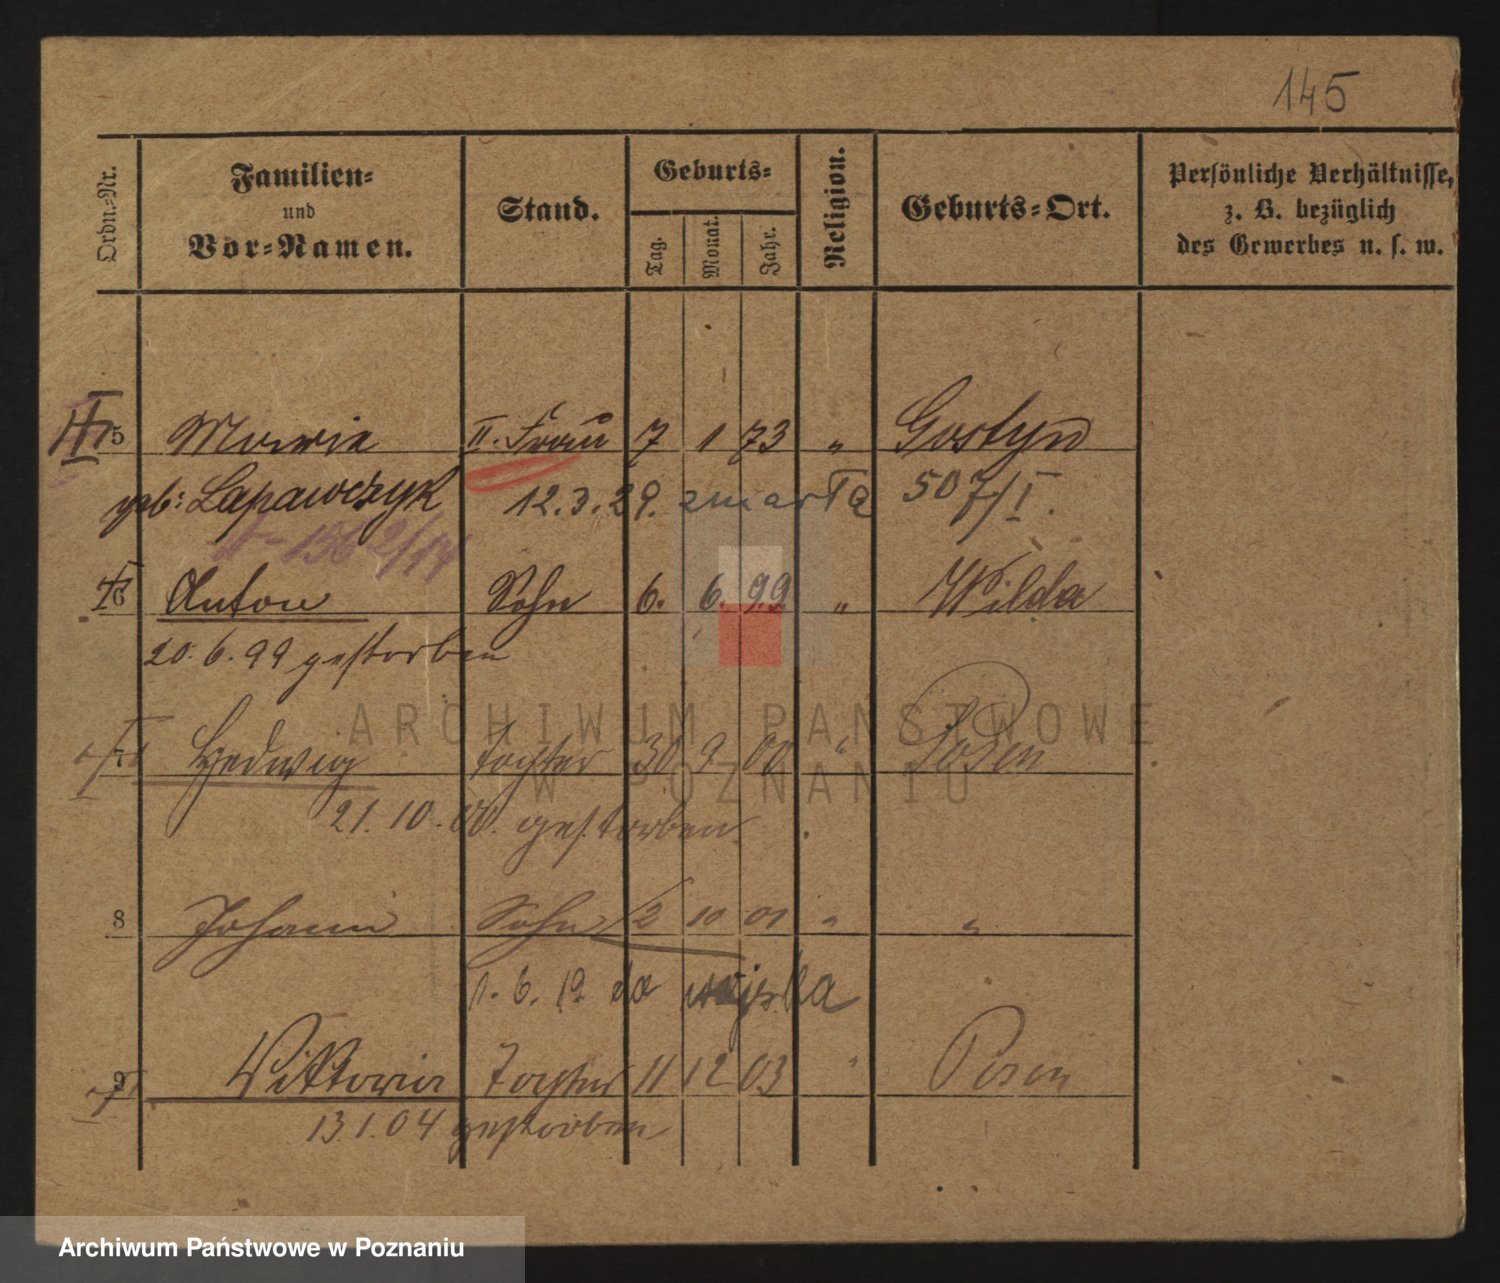 145
Ordn.-Nr.
Familien-
und
Vor-Namen.
Stand.
Geburts-
Tag.
Monat.
Jahr.
Religion.
Geburts-Ort.
Persönliche Verhältnisse,
z. B. bezüglich
des Gewerbes u. s. w.
5 Marie II. Frau 7 1 73 " Gostyn
geb: Lapawczyk 12.3.29. zmarła 507/I.
6 Anton Sohn 6. 6. 99 " Wilda
20.6.99 gestorben
7 Hedwig Tochter 30 9 00 " Posen
21.10.00. gestorben
8 Johann Sohn 12 10 01 " "
1.6.19 do wojska
9 Viktoria Tochter 11 12 03 " Posen
13.1.04 gestorben
ARCHIWUM PAŃSTWOWE
W POZNANIU
Archiwum Państwowe w Poznaniu